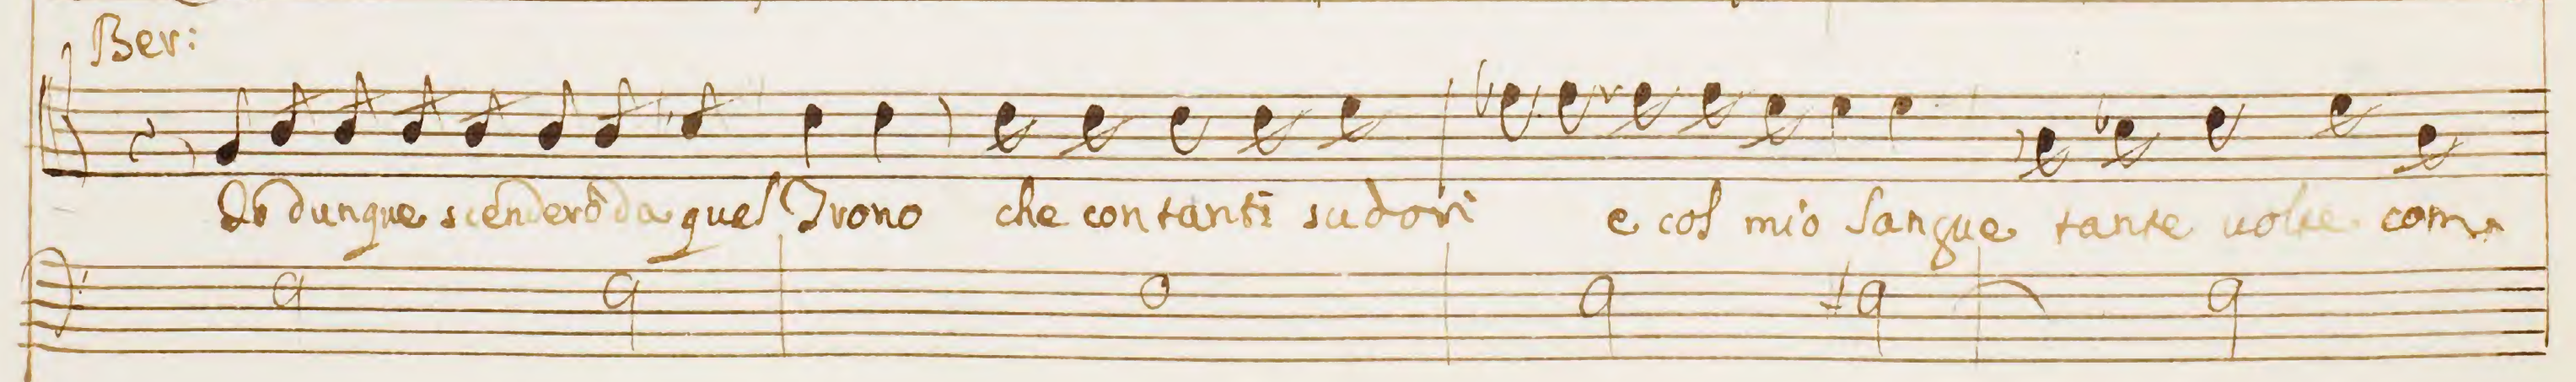 Ber:
Io dunque scenderò da quel Trono che con tanti sudori e col mio sangue tante uolte com